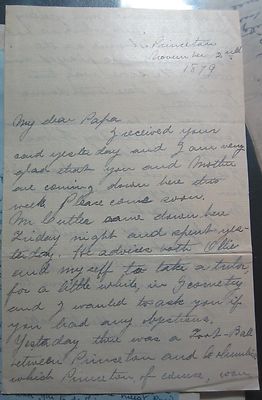 Princeton
November 2nd
1879
My dear Papa
I received your
card yesterday and I am very
glad that you and Mother
are coming down here this
week. Please come soon.
Mr Cutler came down here
Friday night and spent yes-
terday. He advises both Ollie
and myself to take a tutor,
for a little while, in Geometry
and I wanted to ask you if
you had any objections.
Yesterday there was a Foot-Ball
between Princeton and Columbia
which Princeton, of course, won